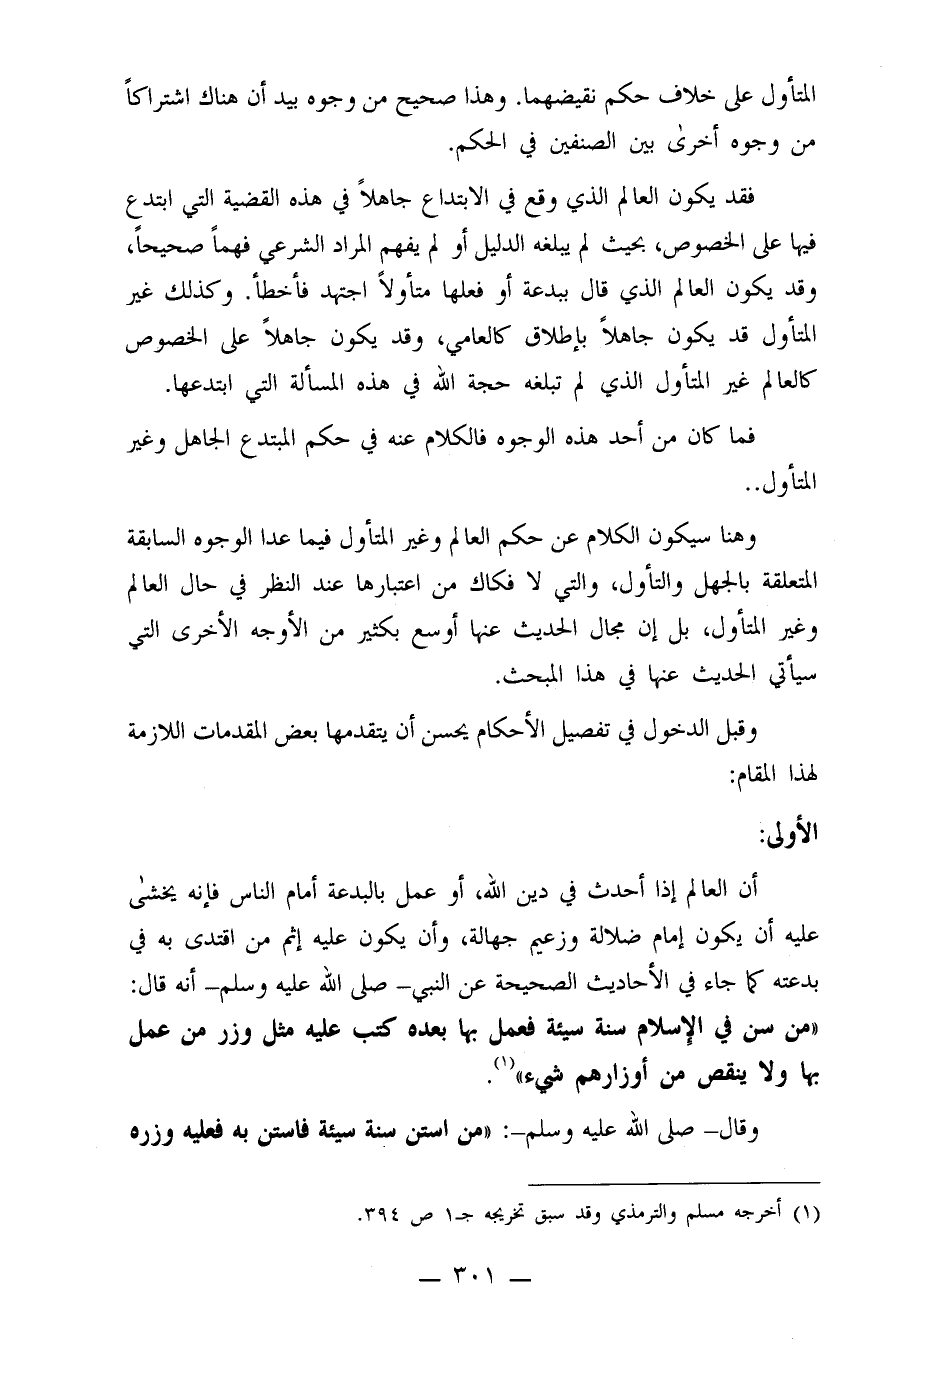 المتأول على خلاف حكم نقيضهما. وهذا صحيح من وجوه بيد أن هناك اشتراكاً
من وجوه أخرىٰ بين الصنفين في الحكم.
فقد يكون العالم الذي وقع في الابتداع جاهلاً في هذه القضية التي ابتدع
فيها على الخصوص، بحيث لم يبلغه الدليل أو لم يفهم المراد الشرعي فهماً صحيحاً،
وقد يكون العالم الذي قال ببدعة أو فعلها متأولاً اجتهد فأخطأ. وكذلك غير
المتأول قد يكون جاهلاً بإطلاق كالعامي، وقد يكون جاهلاً على الخصوص
كالعالم غير المتأول الذي لم تبلغه حجة الله في هذه المسألة التي ابتدعها.
فما كان من أحد هذه الوجوه فالكلام عنه في حكم المبتدع الجاهل وغير
المتأول..
وهنا سيكون الكلام عن حكم العالم وغير المتأول فيما عدا الوجوه السابقة
المتعلقة بالجهل والتأول، والتي لا فكاك من اعتبارها عند النظر في حال العالم
وغير المتأول، بل إن مجال الحديث عنها أوسع بكثير من الأوجه الأخرى التي
سيأتي الحديث عنها في هذا المبحث.
وقبل الدخول في تفصيل الأحكام يحسن أن يتقدمها بعض المقدمات اللازمة
لهذا المقام:
الأولى:
أن العالم إذا أحدث في دين الله، أو عمل بالبدعة أمام الناس فإنه يخشىٰ
عليه أن يكون إمام ضلالة وزعيم جهالة، وأن يكون عليه إثم من اقتدى به في
بدعته كما جاء في الأحاديث الصحيحة عن النبي– صلى الله عليه وسلم– أنه قال:
«من سن في الإسلام سنة سيئة فعمل بها بعده كتب عليه مثل وزر من عمل
بها ولا ينقص من أوزارهم شيء»(١).
وقال– صلى الله عليه وسلم–: «من استن سنة سيئة فاستن به فعليه وزره
(١) أخرجه مسلم والترمذي وقد سبق تخريجه جـ١ ص ٣٩٤.
— ٣٠١ —